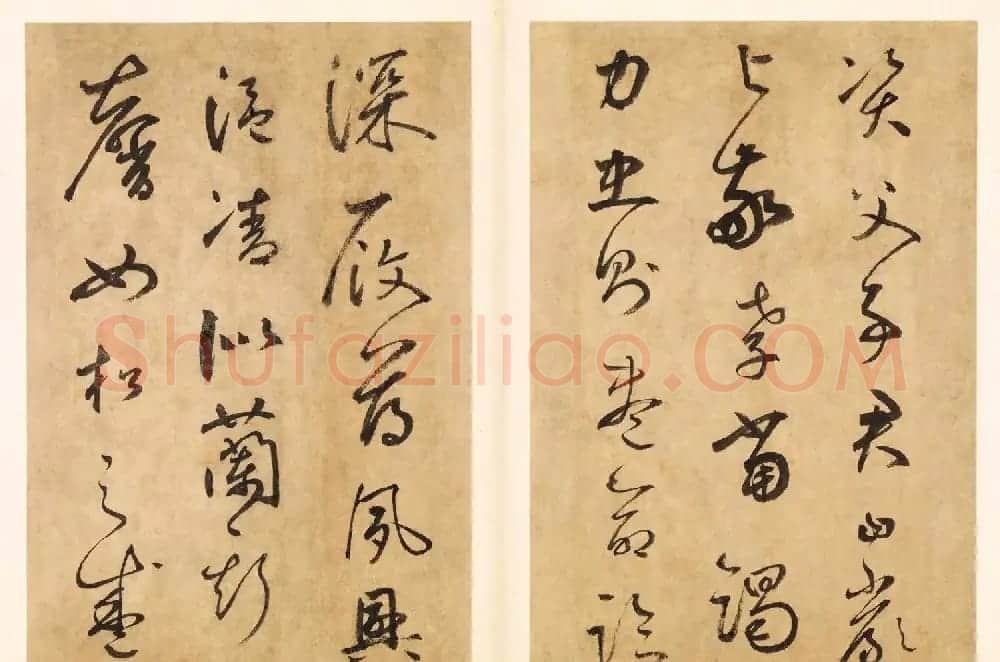 資父事君曰嚴
與敬孝當竭
力忠則盡命臨
深履薄夙興
溫凊似蘭斯
馨如松之盛
Shufaziliao.COM